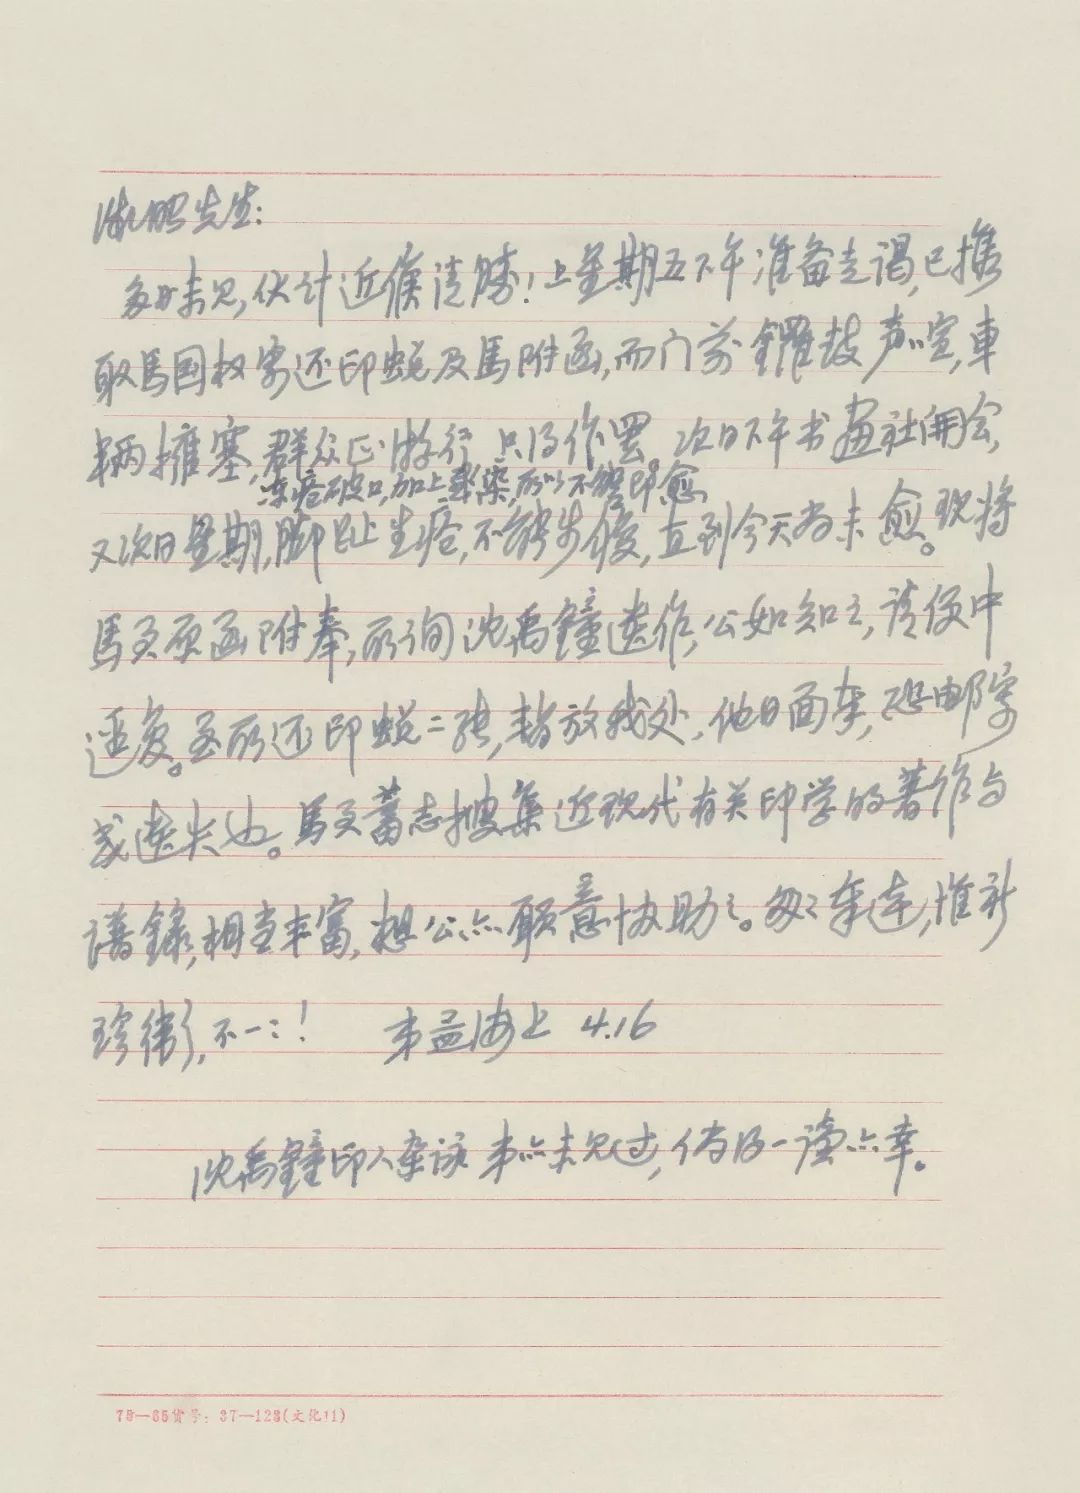 淑照先生:
多日未见,伙计近候清胜!上星期五下午准备走谒,已携
取馬国权寄还印蜕及馬附函,而门前鑼鼓声喧,車
輌擁塞,群众正游行,只得作罢。次日下午书画社開会,
冻疮破口,加上感染,所以不能即愈
又次日星期,脚趾生疮,不能步履,直到今天尚未愈。现将
馬兄原函附奉,所询沈禹鐘遗作,公如知之,请便中
迳复。至所还印蜕二张,暂放我处,他日面奉,恐邮寄
或遗失也。馬兄蓄志搜集近现代有关印学的著作与
谱録,相当丰富,想公亦願意协助之。匆匆奉達,惟祈
珍衛,不一一!  弟益海上 4.16
沈禹鐘印人杂詠弟亦未见过,倘得一讀亦幸。
73—65货号:37—123(文化11)